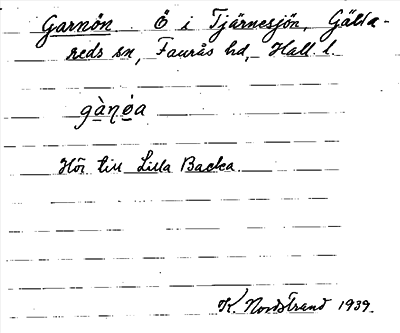 Garnön Ö i Tjärnesjön, Gälla-
reds sn, Faurås hd, Hall. l.
gàṇėa
Hör till Lilla Backa
K. Nordstrand 1939.